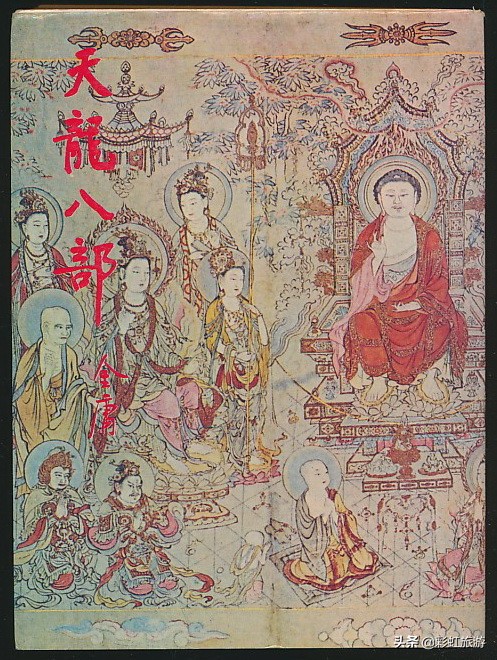 天龍八部
金庸
头条 @彩虹旅游